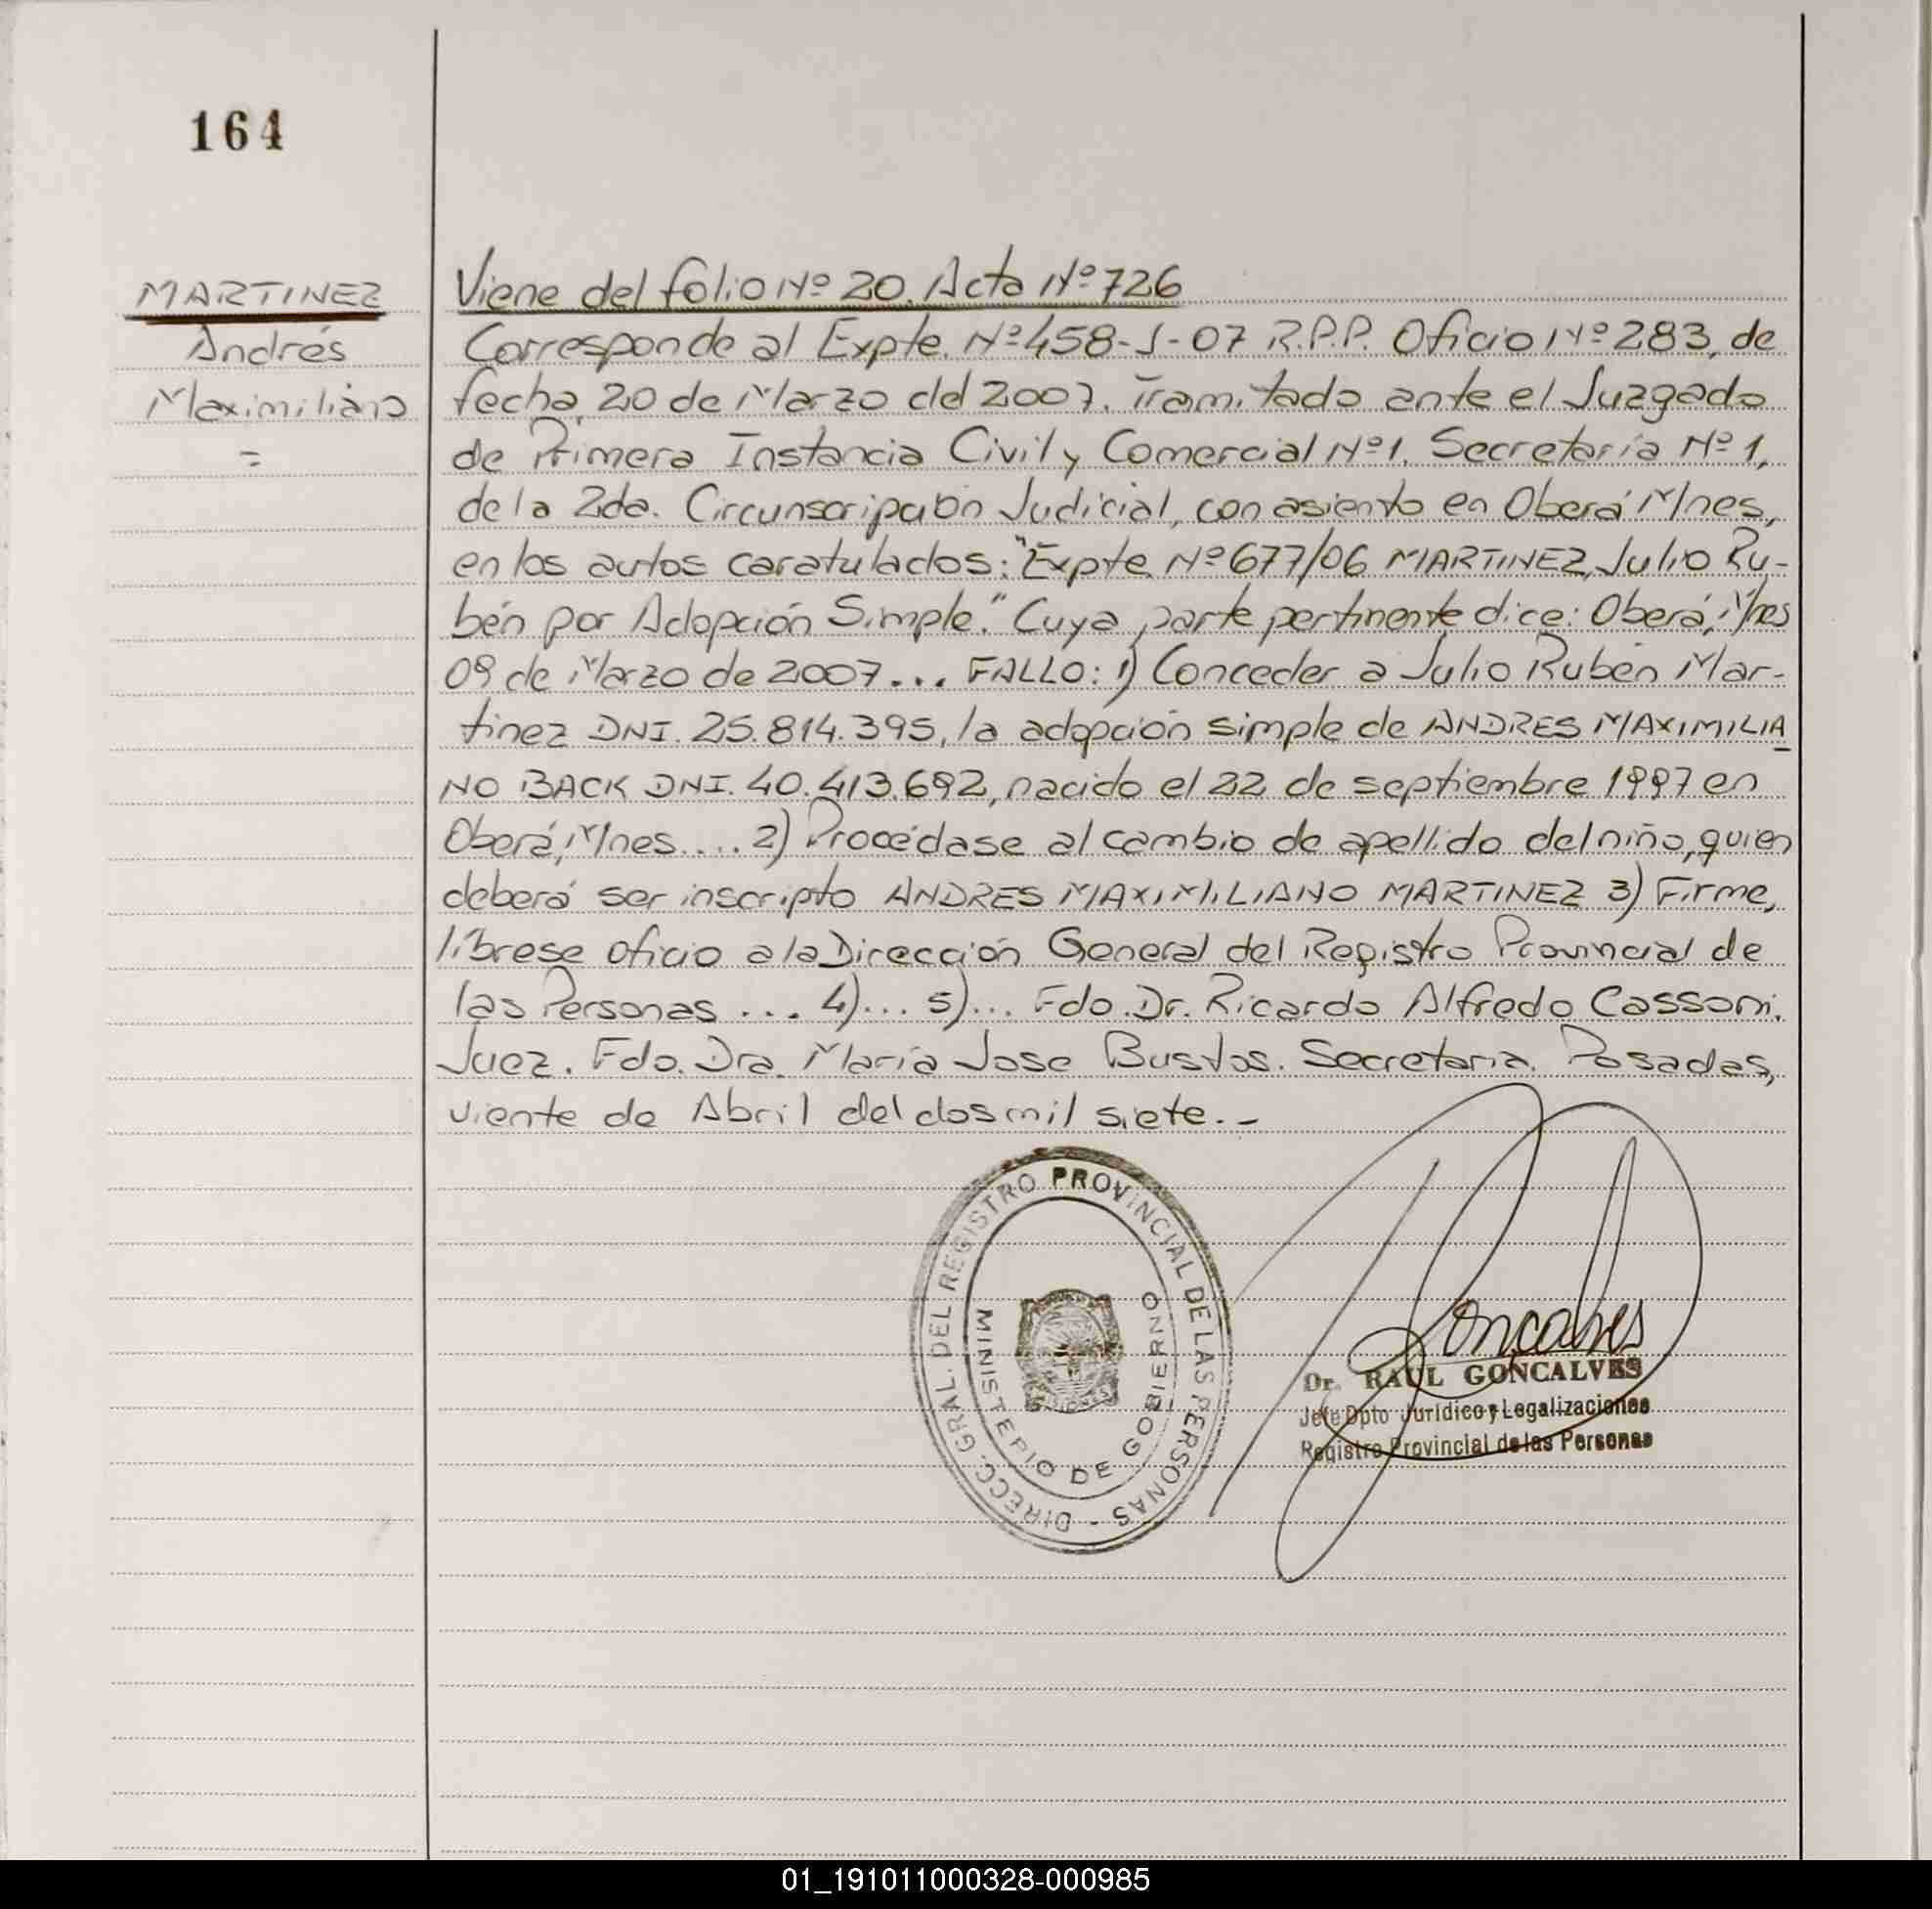 164
MARTINEZ
Andrés
Maximiliano
=
Viene del folio Nº 20. Acta Nº 726
Corresponde al Expte. Nº 458-J-07 R.P.P. Oficio Nº 283, de
fecha 20 de Marzo del 2007. Tramitado ante el Juzgado
de Primera Instancia Civil y Comercial Nº 1. Secretaría Nº 1,
de la 2da. Circunscripción Judicial, con asiento en Oberá Mnes,
en los autos caratulados: "Expte. Nº 677/06 MARTINEZ, Julio Ru-
bén por Adopción Simple." Cuya parte pertinente dice: Oberá, Mnes
09 de Marzo de 2007... FALLO: 1) Conceder a Julio Rubén Mar-
tinez DNI. 25.814.395, la adopción simple de ANDRES MAXIMILIA
NO BACK DNI. 40.413.692, nacido el 22 de septiembre 1997 en
Oberá, Mnes.... 2) Procédase al cambio de apellido del niño, quien
deberá ser inscripto ANDRES MAXIMILIANO MARTINEZ 3) Firme,
líbrese oficio a la Dirección General del Registro Provincial de
las Personas ... 4)... 5)... Fdo. Dr. Ricardo Alfredo Cassoni.
Juez. Fdo. Dra. María Jose Bustos. Secretaria. Posadas,
viente de Abril del dos mil siete.-
DIRECC. GRAL. DEL REGISTRO PROVINCIAL DE LAS PERSONAS -
MINISTERIO DE GOBIERNO
MISIONES
Goncalves
Dr. RAUL GONCALVES
Jefe Dpto Jurídico y Legalizaciones
Registro Provincial de las Personas
01_191011000328-000985